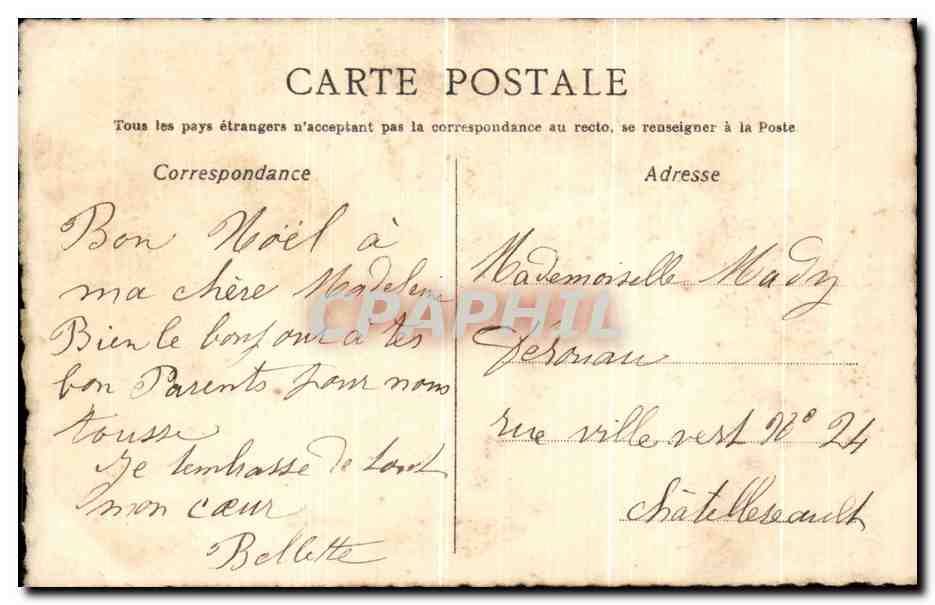 CARTE POSTALE
Tous les pays étrangers n'acceptant pas la correspondance au recto, se renseigner à la Poste
Correspondance
Bon Noël à
ma chère Madelein
Bien le bonjour à tes
bon Parents pour nous
tousse
Je t'embrasse de tout
mon cœur
Bellette
Adresse
Mademoiselle Mady
rue ville vert No 24
Châtellereault
CPAPHIL